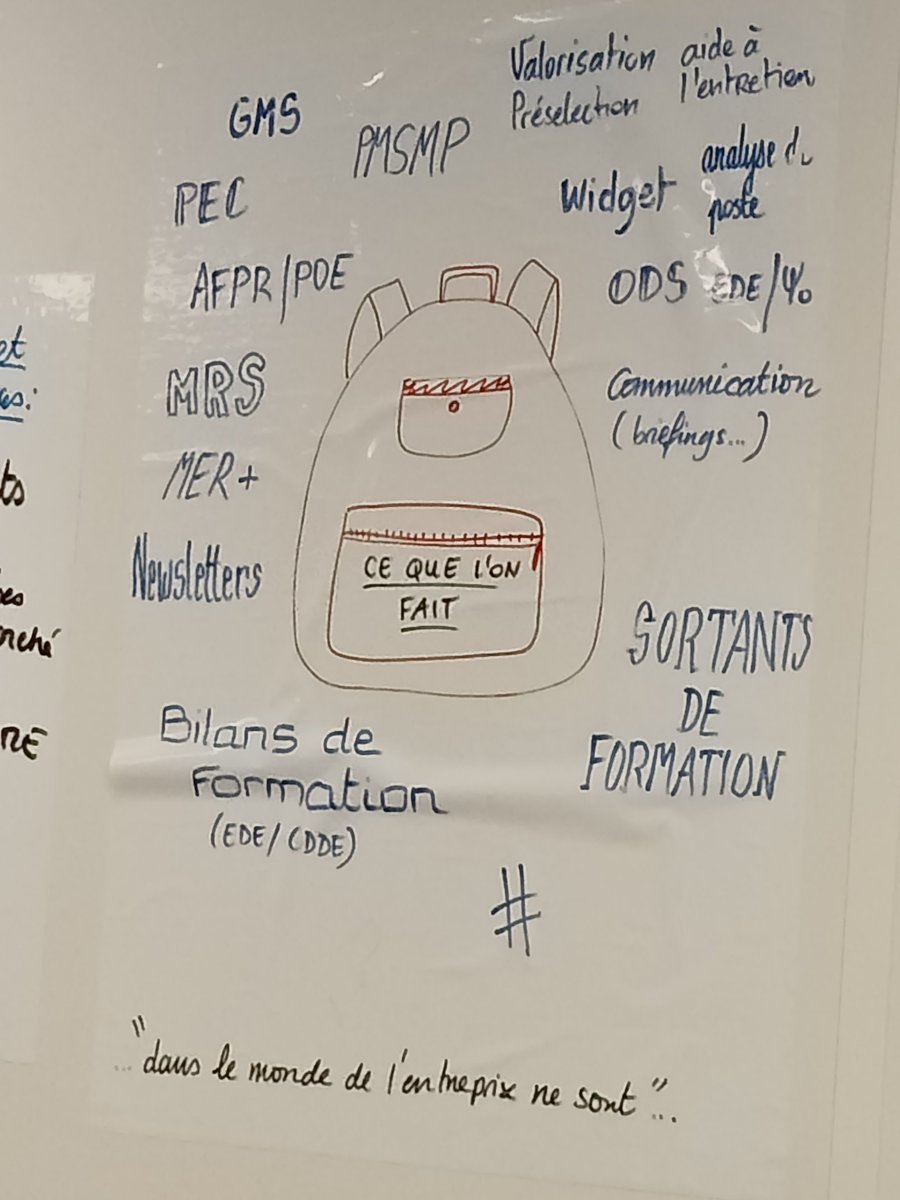 GMS
PMSMP
Valorisation
Préselection
aide à
l'entretien
PEC
Widget
analyse du
poste
AFPR/POE
ODS EDE/Ψo
MRS
Communication
(briefings...)
MER+
Newsletters
CE QUE L'ON
FAIT
SORTANTS
DE
FORMATION
Bilans de
Formation
(EDE/CDDE)
#
..."dans le monde de l'entreprise ne sont"...
et
ts
rché
RE